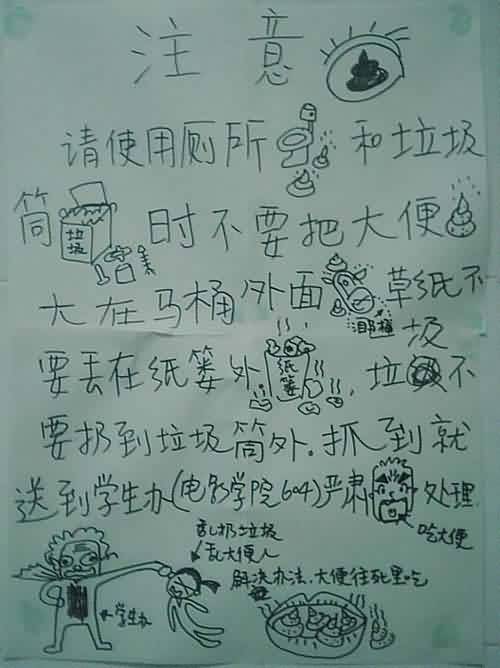 注意
请使用厕所和垃圾
筒垃圾时不要把大便
大在马桶外面草纸不
马桶
要丢在纸篓纸篓外,垃圾不
要扔到垃圾筒外.抓到就
送到学生办(电影学院604)严肃处理
吃大便
乱扔垃圾
乱大便人
解决办法,大便往死里吃
学生办